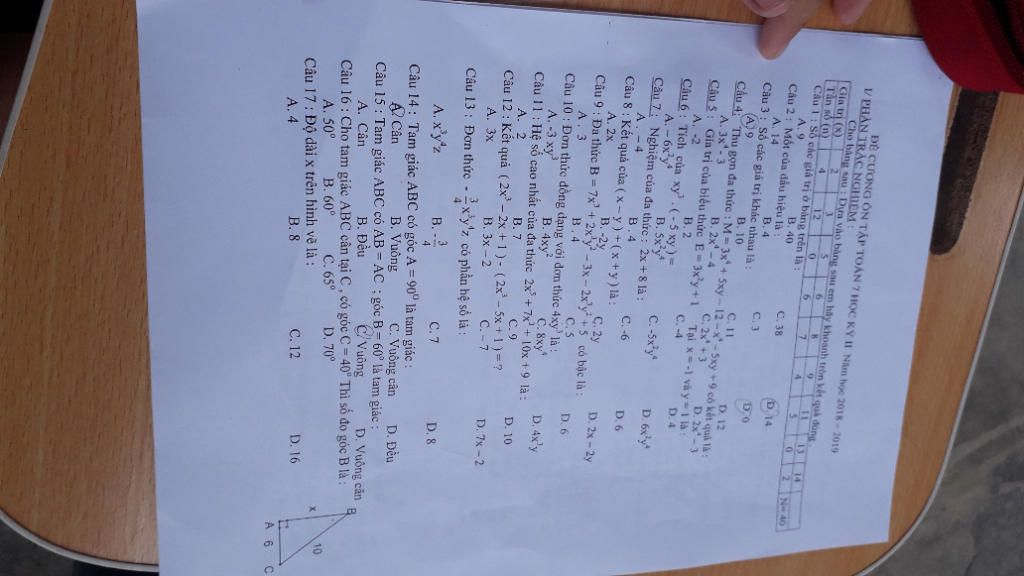 ĐỀ CƯƠNG ÔN TẬP TOÁN 7 HỌC KỲ II Năm học 2018 – 2019
I/ PHẦN TRẮC NGHIỆM :
Cho bảng sau : Dựa vào bảng sau em hãy khoanh tròn kết quả đúng
Giá trị (x) 2 3 5 6 8 9 11 13 14
Tần số (n) 4 12 0 6 7 4 5 0 2 N= 40
Câu 1 : Số các giá trị ở bảng trên là :
A. 9 B. 40 C. 38 D. 14
Câu 2 : Mốt của dấu hiệu là :
A. 14 B. 4 C. 3 D. 0
Câu 3 : Số các giá trị khác nhau là :
A. 9 B. 10 C. 11 D. 12
Câu 4: Thu gọn đa thức : M = 3x⁴ + 5xy – 12 – x⁴ - 5xy + 9 có kết quả là :
A. 3x⁴ + 3 B. 2x⁴ – 4 C. 2x⁴ + 3 D. 2x⁴ – 3
Câu 5 : Giá trị của biểu thức E = 3x²y + 1 Tại x = -1 và y = 1 là :
A. -2 B. 2 C. -4 D. 4
Câu 6 : Tích của xy³ . ( -5 xy ) =
A. – 6x²y⁴ B. 5x²y⁴ C. -5x²y⁴ D. 6x²y⁴
Câu 7 : Nghiệm của đa thức : 2x + 8 là :
A. – 4 B. 4 C. -6 D. 6
Câu 8 : Kết quả của ( x – y ) + ( x + y ) là :
A. 2x B. -2y C. 2y D. 2x – 2y
Câu 9 : Đa thức B = 7x³ + 2x²y² - 3x – 2x³y² + 5 có bậc là :
A. 3 B. 4 C. 5 D. 6
Câu 10 : Đơn thức đồng dạng với đơn thức 4xy³ là :
A. -3 xy³ B. 4xy² C. 8xy⁴ D. 4x³y
Câu 11 : Hệ số cao nhất của đa thức 2x⁵ + 7x³ - 10x + 9 là :
A. 2 B. 7 C. 9 D. 10
Câu 12 : Kết quả ( 2x³ – 2x + 1 ) - ( 2x³ – 5x + 1 ) = ?
A. 3x B. 3x – 2 C. – 7 D. 7x – 2
Câu 13 : Đơn thức - 3/4 x³y⁴z có phần hệ số là :
A. x³y⁴z B. - 3/4 C. 7 D. 8
Câu 14 : Tam giác ABC có góc A = 90⁰ là tam giác :
A. Cân B. Vuông C. Vuông cân D. Đều
Câu 15 : Tam giác ABC có AB = AC ; góc B = 60⁰ là tam giác :
A. Cân B. Đều C. Vuông D. Vuông cân
Câu 16 : Cho tam giác ABC cân tại C , có góc C = 40⁰ Thì số đo góc B là :
A. 50⁰ B. 60⁰ C. 65⁰ D. 70⁰
Câu 17 : Độ dài x trên hình vẽ là :
A. 4 B. 8 C. 12 D. 16
B
x 10
A 6 C